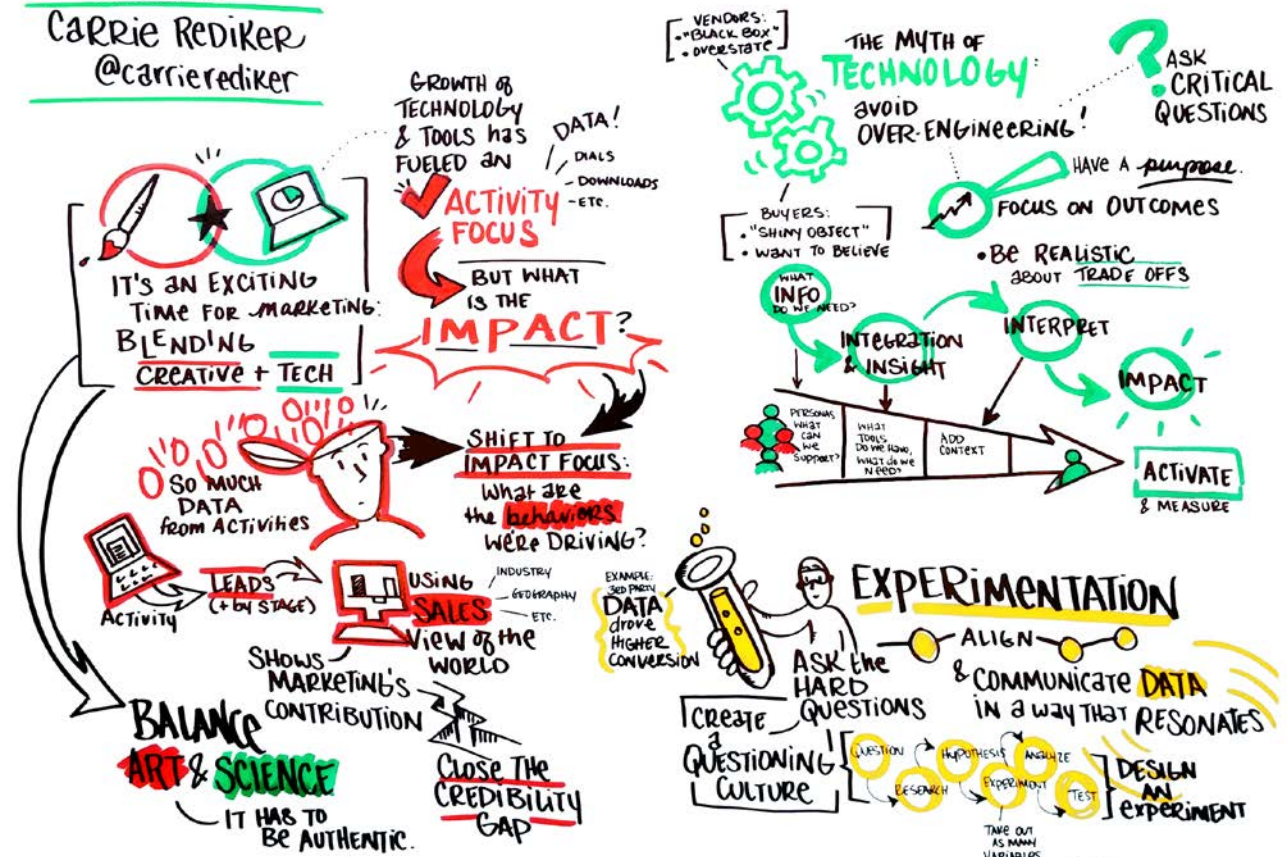 CARRIE REDIKER
@carrierediker
GROWTH of
TECHNOLOGY
& TOOLS has
FUELED AN
DATA!
DIALS
- DOWNLOADS
- ETC.
ACTIVITY
FOCUS
BUT WHAT
IS THE
IMPACT?
IT'S AN EXCITING
TIME FOR MARKETING:
BLENDING
CREATIVE + TECH
SO MUCH
DATA
from ACTIVITIES
SHIFT TO
IMPACT FOCUS:
What are
the behaviors
WE'RE DRIVING?
Activity
LEADS
(+ by STAGE)
USING
SALES
View of the
WORLD
INDUSTRY
GEOGRAPHY
ETC.
SHOWS
MARKETING'S
CONTRIBUTION
CLOSE THE
CREDIBILITY
GAP
BALANCE
ART & SCIENCE
IT HAS TO
BE AUTHENTIC.
VENDORS:
• "BLACK BOX"
• OVERSTATE
THE MYTH OF
TECHNOLOGY:
avoid
OVER-ENGINEERING!
? ASK
CRITICAL
QUESTIONS
HAVE A purpose.
FOCUS ON OUTCOMES
• BE REALISTIC
about TRADE OFFS
BUYERS:
• "SHINY OBJECT"
• WANT TO BELIEVE
WHAT
INFO
DO WE NEED?
INTEGRATION
& INSIGHT
INTERPRET
IMPACT
PERSONAS
WHAT
CAN
WE
SUPPORT?
WHAT
TOOLS
DO WE HAVE,
WHAT do WE
NEED?
ADD
CONTEXT
ACTIVATE
& MEASURE
EXAMPLE:
3RD PARTY
DATA
drove
HIGHER
CONVERSION
EXPERIMENTATION
ALIGN
& COMMUNICATE DATA
IN a WAY THAT RESONATES
ASK the
HARD
QUESTIONS
CREATE
a
QUESTIONING
CULTURE
QUESTION
RESEARCH
HYPOTHESIS
EXPERIMENT
ANALYZE
TEST
DESIGN
AN
EXPERIMENT
TAKE OUT
AS MANY
VARIABLES